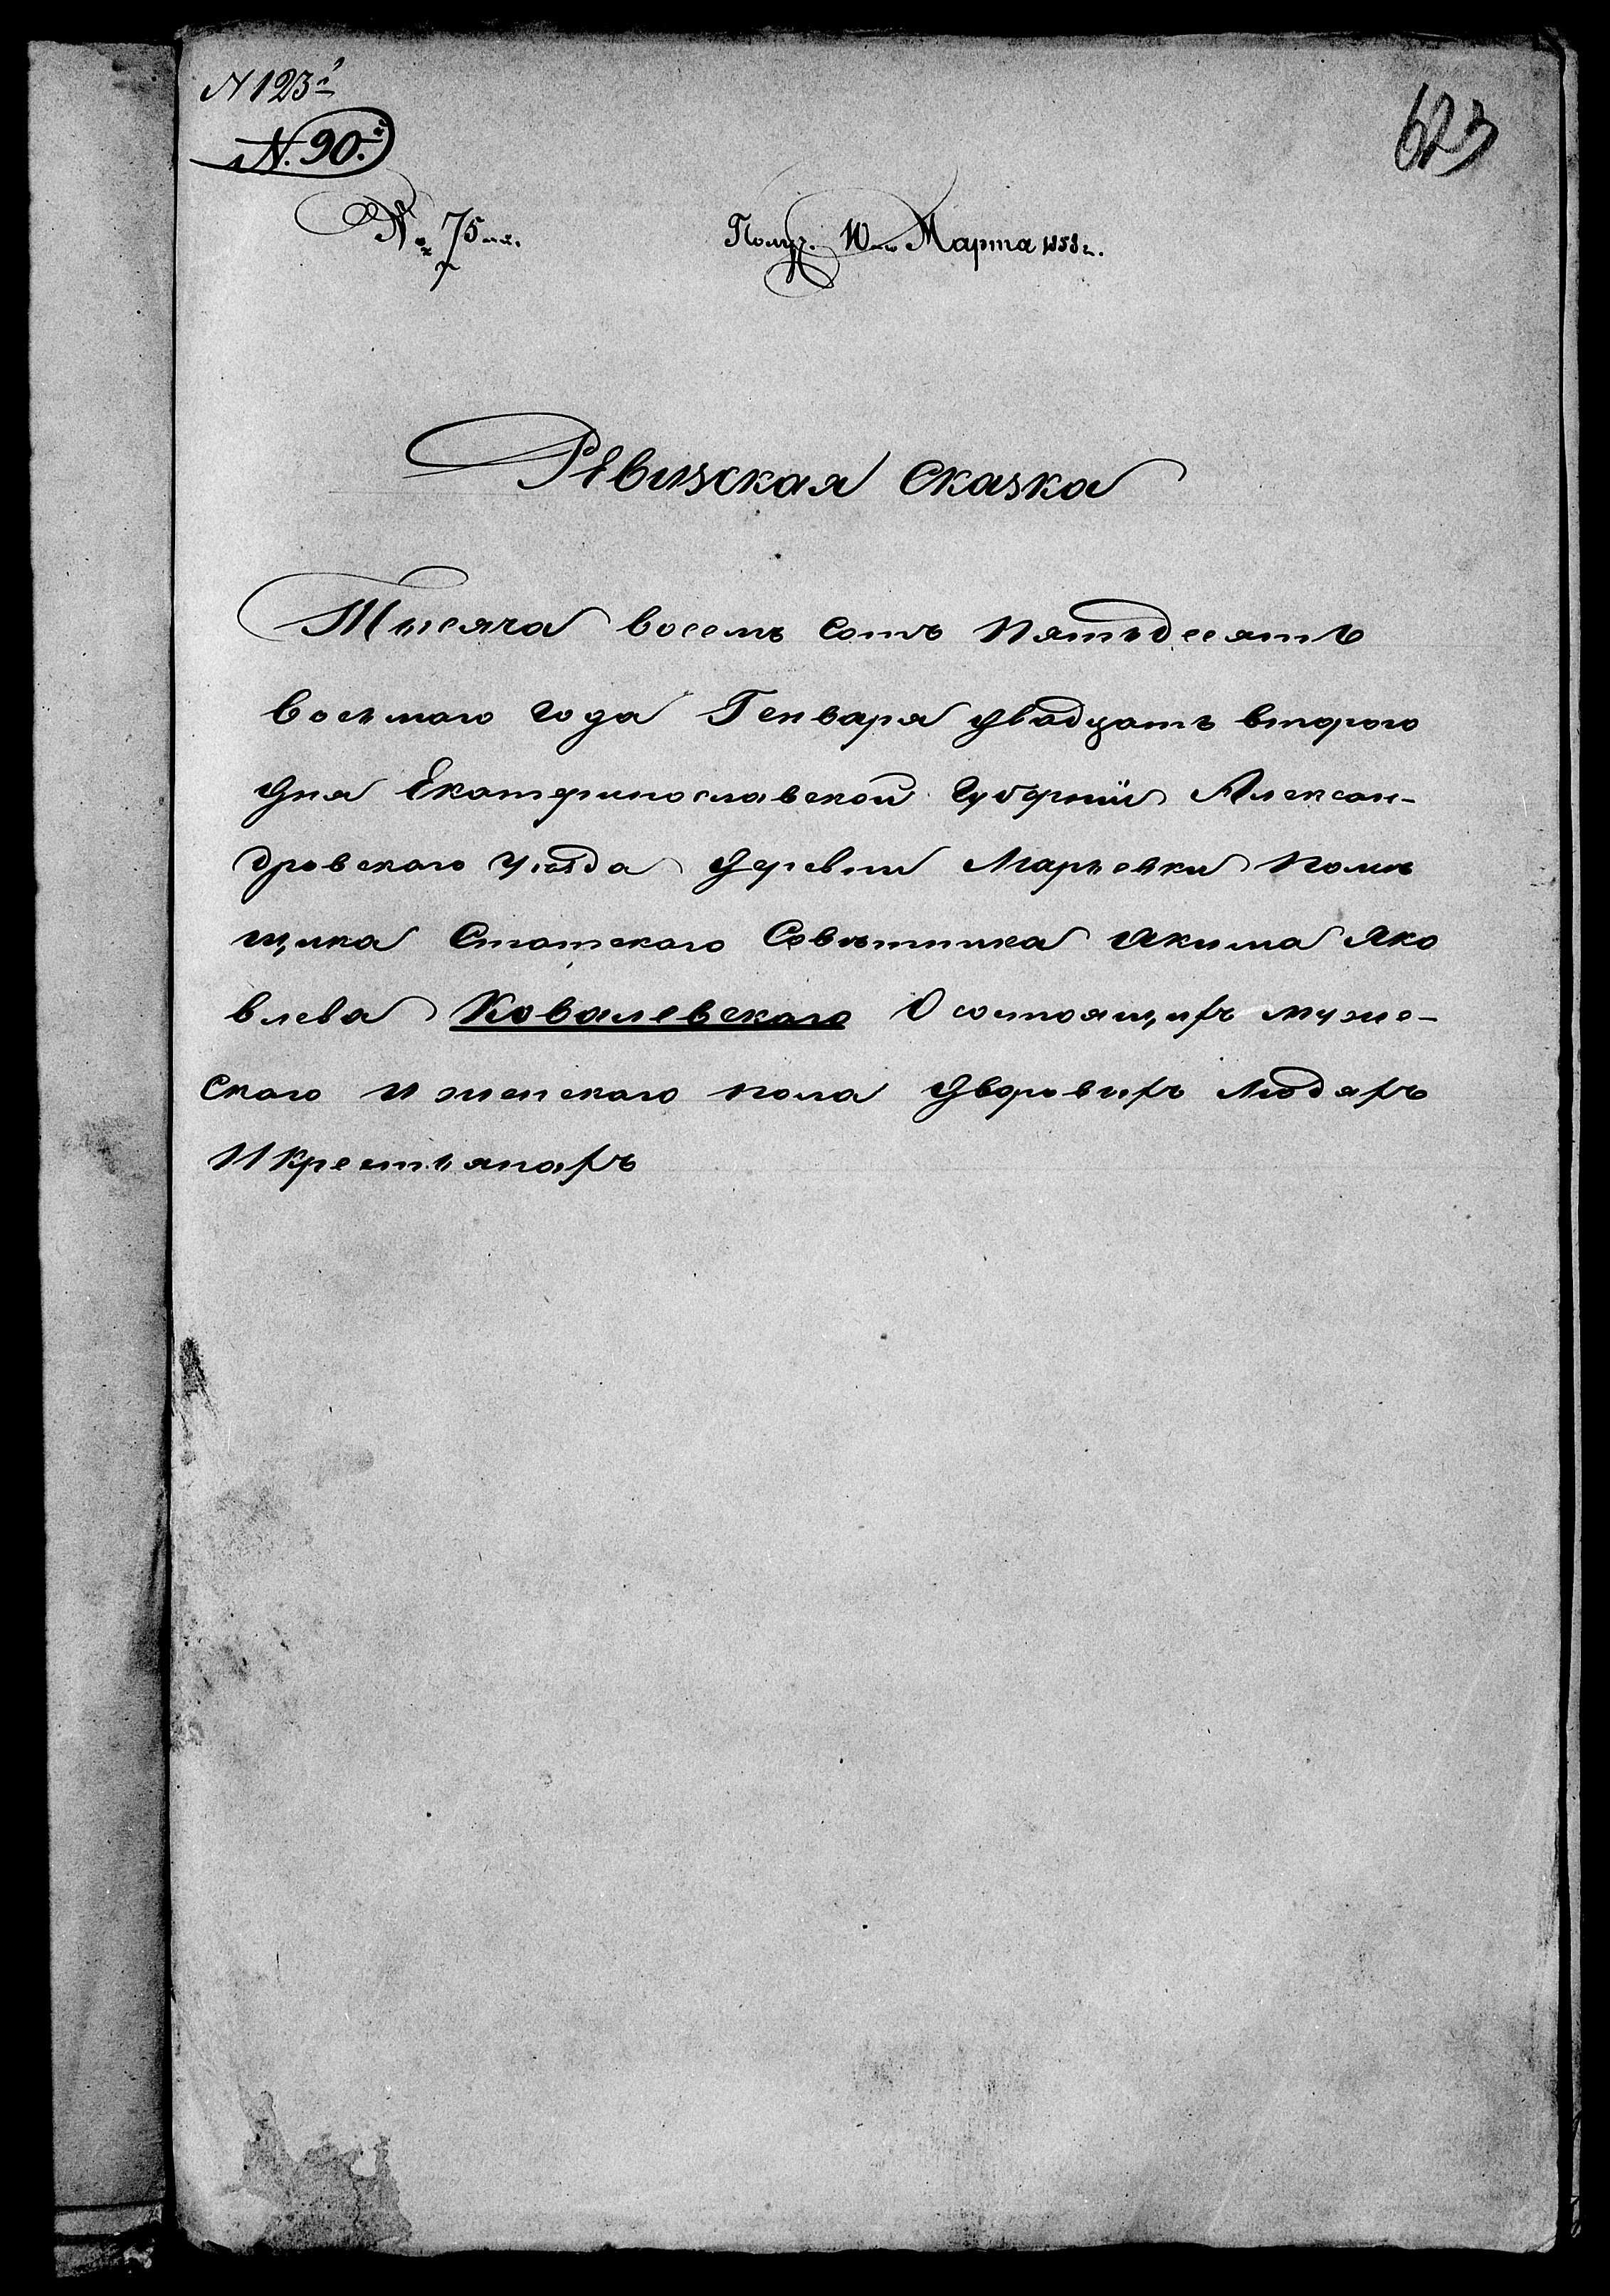 N 123й
N. 90.й
623
№ 75й.
Получ. 10го Марта 1858 г.
Ревизская Сказка
Тысяча восемъ сотъ пятьдесятъ
восьмаго года Генваря двадцать втораго
дня Екатеринославской Губернiи Алексан-
дровскаго уѣзда деревни Марьевки помѣ
щика Статскаго Совѣтника Акима Яко
влева Ковалевскаго О состоящихъ муже-
скаго и женскаго пола дворовыхъ людяхъ
И крестьянахъ